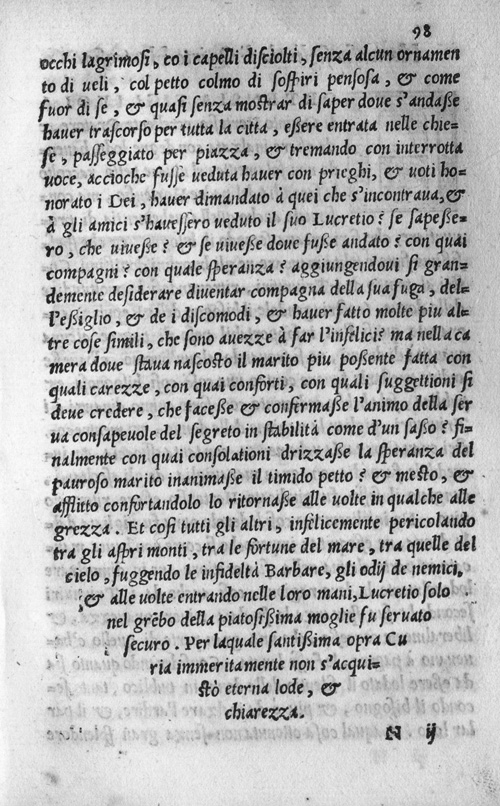 98
occhi lagrimosi, co i capelli disciolti, senza alcun ornamen
to di ueli, col petto colmo di sospiri pensosa, & come
fuor di se, & quasi senza mostrar di saper doue s'andaße
hauer trascorso per tutta la citta, eßere entrata nelle chie=
se, passeggiato per piazza, & tremando con interrotta
uoce, accioche fusse ueduta hauer con prieghi, & uoti ho=
norato i Dei, hauer dimandato à quei che s'incontraua, &
à gli amici s'hauessero ueduto il suo Lucretio? se sapeße=
ro, che uiueße? & se uiueße doue fuße andato? con quai
compagni? con quale speranza? aggiungendoui si gran=
demente desiderare diuentar compagna della sua fuga, del=
l'eßiglio, & de i discomodi, & hauer fatto molte piu al=
tre cose simili, che sono auezze à far l'infelici? ma nella ca
mera doue staua nascosto il marito piu poßente fatta con
quali carezze, con quai conforti, con quali suggettioni si
deue credere, che faceße & confirmaße l'animo della ser
ua consapeuole del segreto in stabilità come d'un saßo? fi=
nalmente con quai consolationi drizzaße la speranza del
pauroso marito inanimaße il timido petto? & mesto, &
afflitto confortandolo lo ritornaße alle uolte in qualche alle
grezza. Et cosi tutti gli altri, infelicemente pericolando
tra gli aspri monti, tra le fortune del mare, tra quelle del
cielo, fuggendo le infideltà Barbare, gli odij de nemici,
& alle uolte entrando nelle loro mani, Lucretio solo
nel grẽbo della piatosißima moglie fu seruato
securo. Per laquale santißima opra Cu
ria immeritamente non s'acqui=
stò eterna lode, &
chiarezza.
N ij